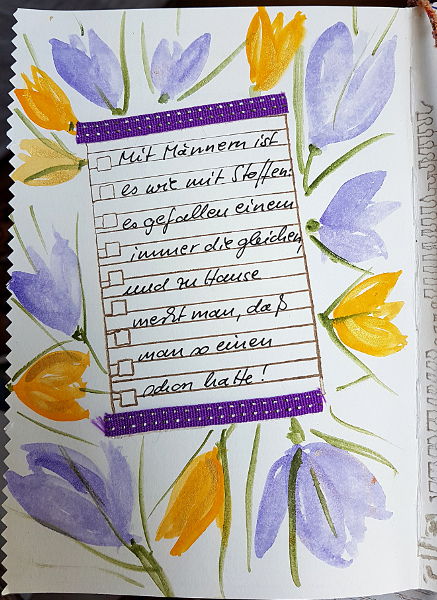 Mit Männern ist
es wie mit Stoffen:
es gefallen einem
immer die gleichen,
und zu Hause
merkt man, daß
man so einen
schon hatte!